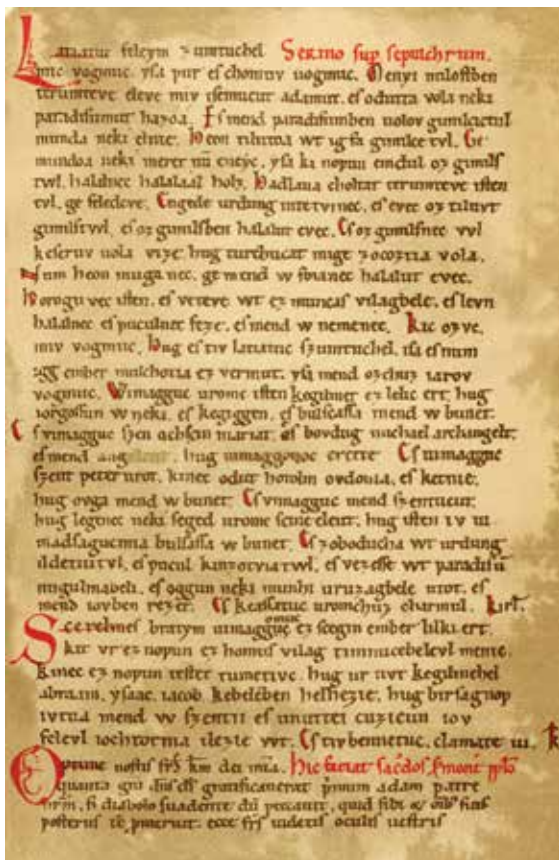 Latiatuc feleym zumtuchel Sermo sup sepulchrum.
mic vogmuc. yſa pur eſ chomuv uogmuc. Menyi miloſtben
terumteve eleve miv iſemucut adamut. eſ odutta vola neki
paradiſumut hazoa. Eſ mend paradiſumben uolov gimilcictul
munda neki elnie. Heon tilutoa wt ig fa gimilce tvl. Ge
mundoa neki meret nū eneyc. yſa ki nopun emdul oz gimilſ
twl. halalnec halalaal holz. Hadlaua choltat terumteve iſten
tvl. ge feledeve. Engede urdung intetvinec. eſ evec oz tiluvt
gimilſtwl. eſ oz gimilſben halalut evec. Eſ oz gimilſnec vvl
keſeruv uola vize. hug turchucat mige zocoztia vola.
Num heon muga nec. ge mend w foianec halalut evec.
Horogu vec iſten. eſ veteve wt ez muncaſ vilagbele. eſ levn
halalnec eſ puculnec feze. eſ mend w nemenec. Kic ozvc.
miv vogmuc. Hug eſ tiv latiatuc ſzumtuchel. iſa eſ num
igg ember mulchotia ez vermut. yſa mend ozchuz iarov
vogmuc. Wimagguc uromc iſten kegilmet ez lelic ert. hug
iorgoſſun w neki. eſ kegiggen. eſ bulſcaſſa mend w bunet.
Eſ vimagguc ſzen achſcin mariat. eſ bovdug michael archangelt.
eſ mend angelcut. hug uimaggonoc erette. Eſ uimagguc
ſzent peter urot. kinec odut hotolm ovdonia. eſ ketnie.
hug ovga mend w bunet. Eſ vimagguc mend ſzentucut.
hug legenec neki ſeged uromc ſcine eleut. hug iſten iv ui
madſagucmia bulſaſſa w bunet. Eſ zoboducha wt urdung
ildetuitvl. eſ pucul kinzotviatwl. eſ vezeſſe wt paradiſū
nugulmabeli. eſ oggun neki munhi uruzagbele utot. eſ
mend iovben rezet. Eſ keaſſatuc uromchuz charmul. Kirł.
Scerelmeſ bratym uimaggomuc ez ſcegin ember lilki ert.
kit vr ez nopun ez homuſ vilag timnucebelevl mente.
kinec ez nopun teſtet tumetivc. hug ur uvt kegilmehel
abraam. yſaac. iacob. kebeleben helhezie. hug birſagnop
ivtva mend w ſzentii eſ unuttei cuzicun iov
felevl iochtotnia ilezie wt. Eſ tivbennetuc. clamate iii. K
Hic faciat sacdos
quanta diabolo suadente quid
posteris ecce videtis oculis vestris